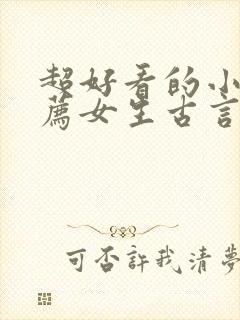 超好看的小
荐女生古言
可否許我清夢